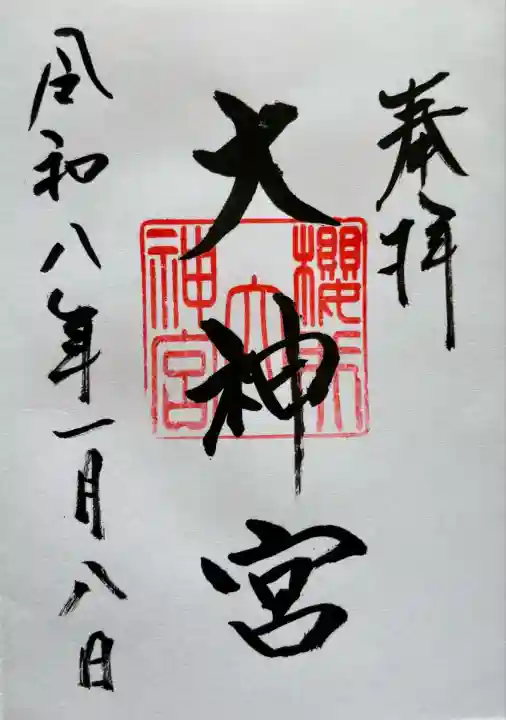 奉拝
大神宮
櫻所大神宮
令和八年一月八日